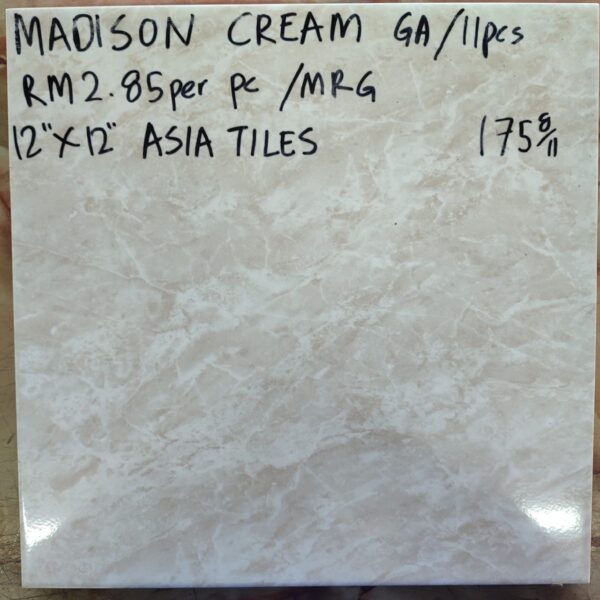 MADISON CREAM GA/11pcs
RM2.85per pc /MRG
12"X12" ASIA TILES 175 8/11